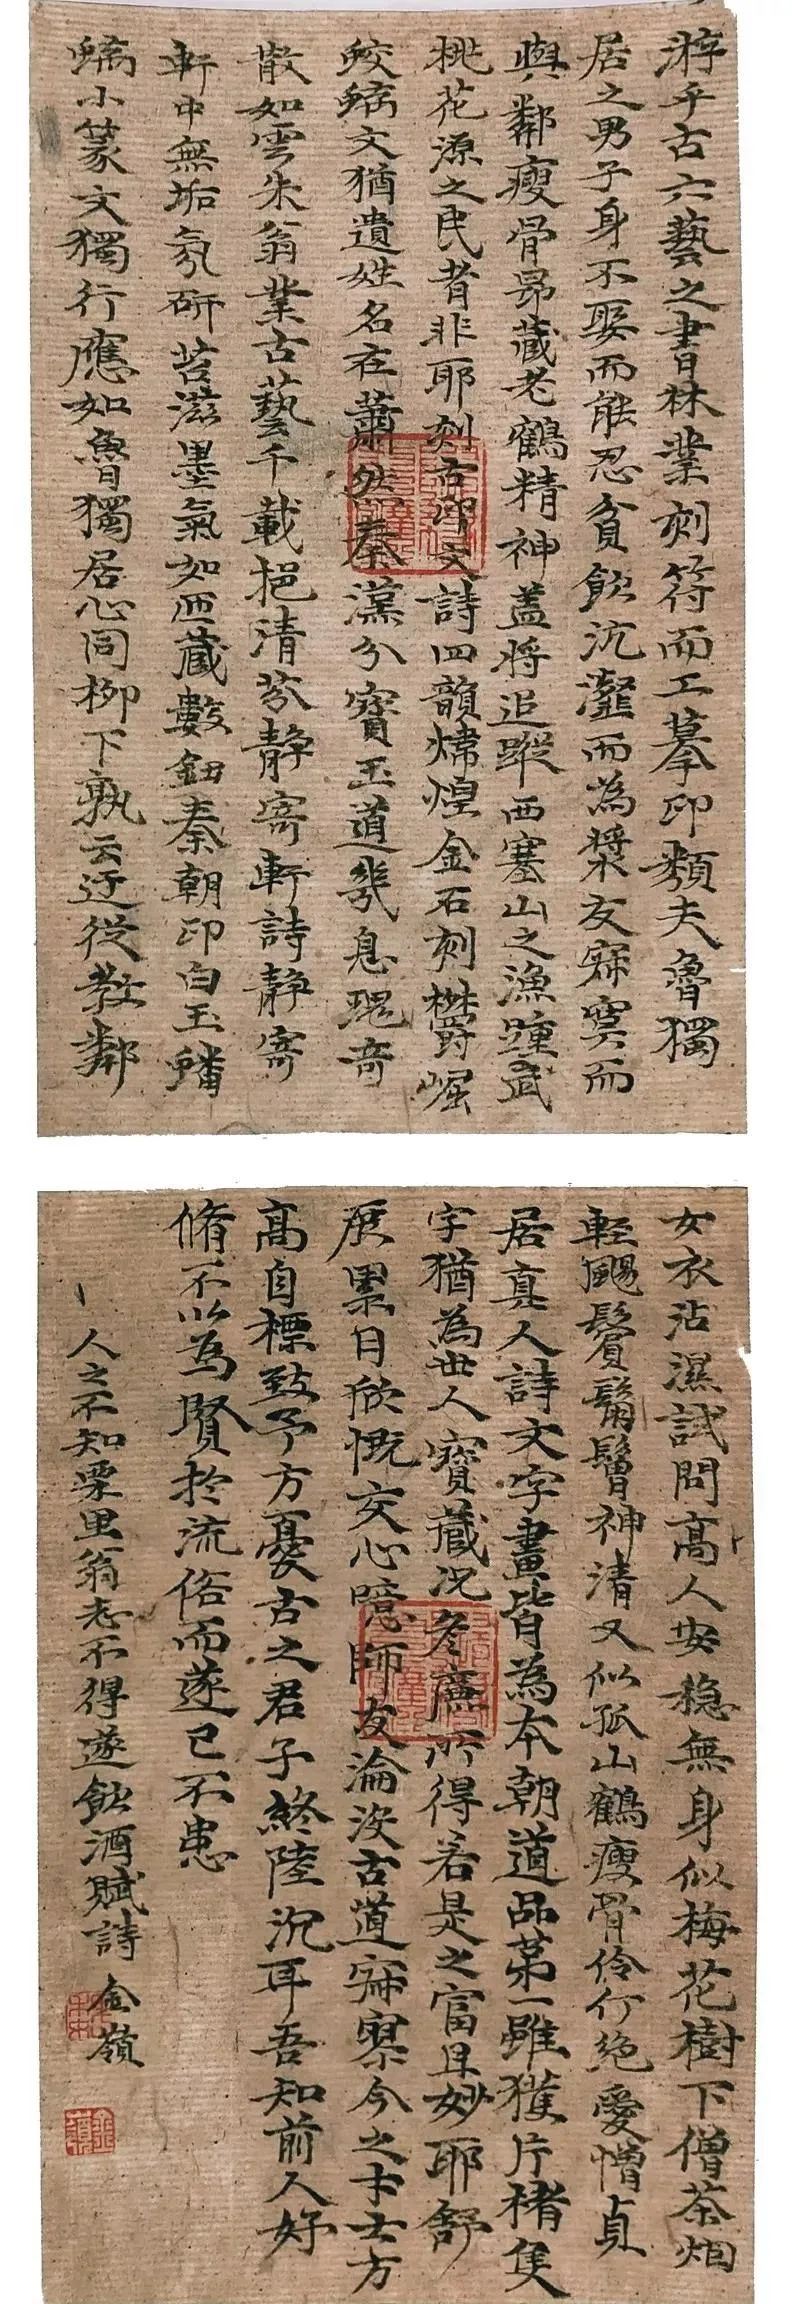 游乎古六藝之書林業刻符而工摹印類夫魯獨
居之男子身不娶而能忍貧飲沆瀣而為漿友寂寞而
與鄰瘦骨昂藏老鶴精神蓋將追蹤西塞山之漁踵武
桃花源之民者非耶刻古印文詩四韻煒煌金石刻鬱崛
蛟螭文猶遺姓名在蕭然秦漢分寶玉道幾息瑰奇
散如雲朱翁業古藝千載挹清芬靜寄軒詩靜寄
軒中無垢氛研苔滋墨氣如匜藏數鈕秦朝印白玉蟠
螭小篆文獨行應如魯獨居心同柳下孰云迂從教鄰
女衣沾濕試問高人安穩無身似梅花樹下僧茶烟
輕颺鬢鬅鬙神清又似孤山鶴瘦骨伶仃絕愛憎貞
居真人詩文字畫皆為本朝道品第一雖獲片楮隻
字猶為世人寶藏況彥廉所得若是之富且妙耶舒
展累日欣慨交心噫師友淪沒古道寂寥今之才士方
高自標致予方憂古之君子終陸沉耳吾知前人好
脩不以為賢於流俗而遂已不患
人之不知栗里翁志不得遂飲酒賦詩 金嶺